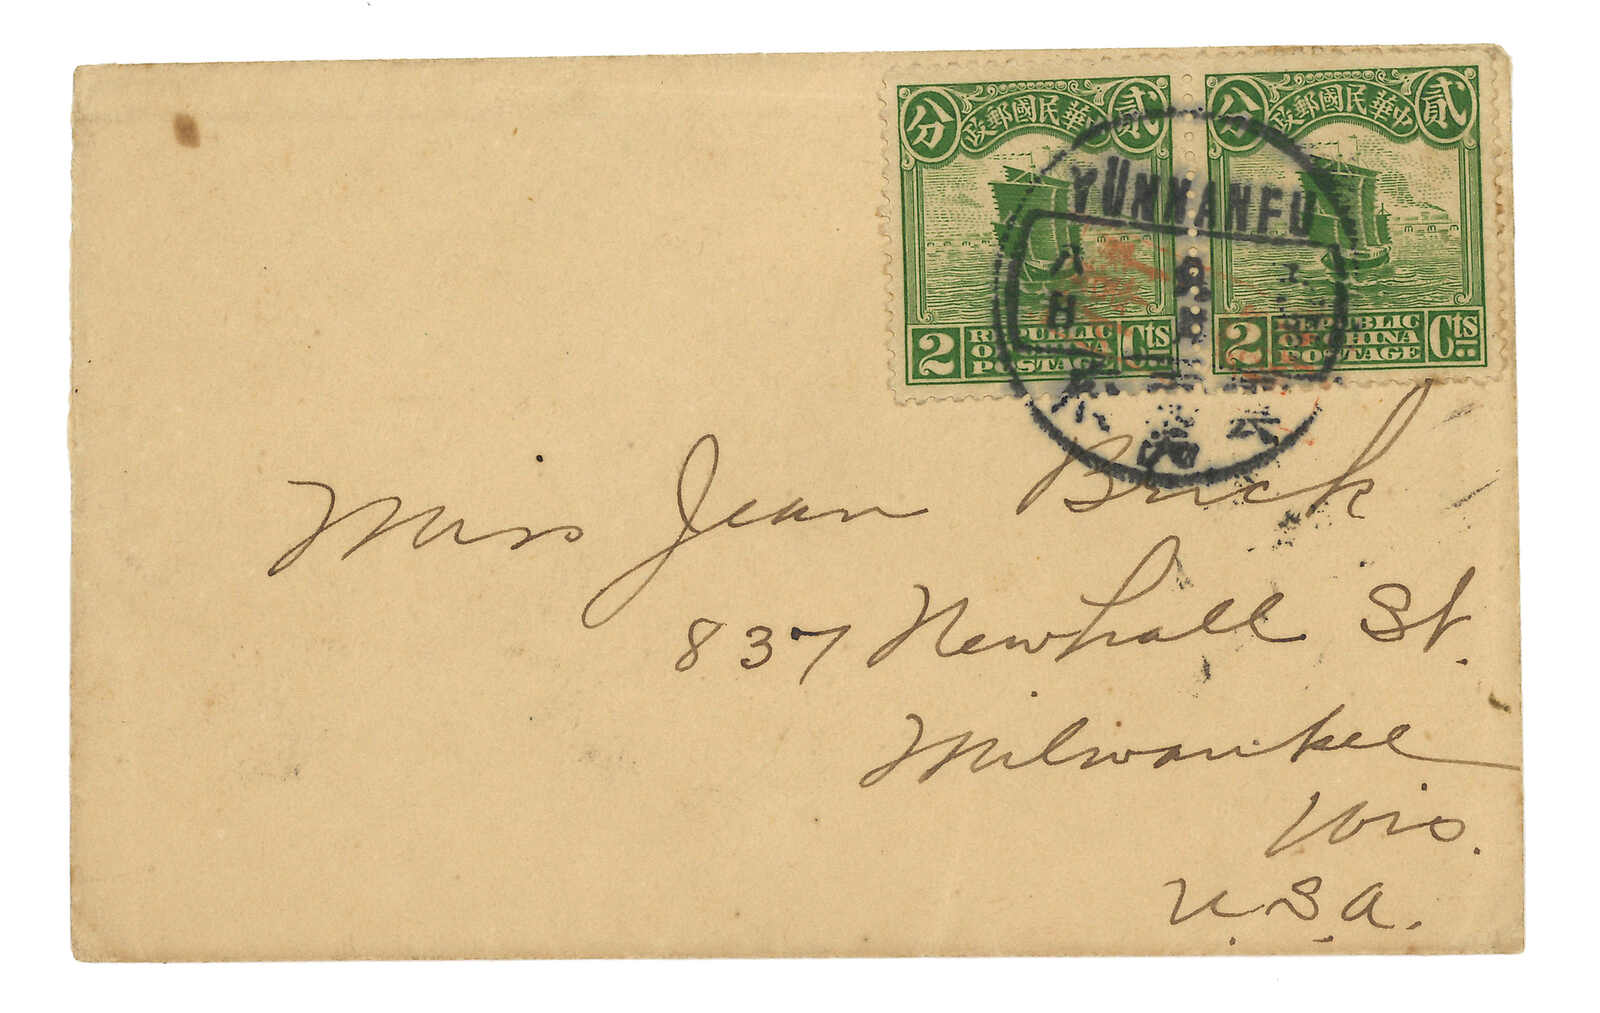 分 中華民國郵政 貳
分 中華民國郵政 貳
YUNNANFU
八
日
2 REPUBLIC OF CHINA POSTAGE Cts
2 REPUBLIC OF CHINA POSTAGE Cts
Miss Jean Buck
837 Newhall St.
Milwaukee
Wis.
U.S.A.